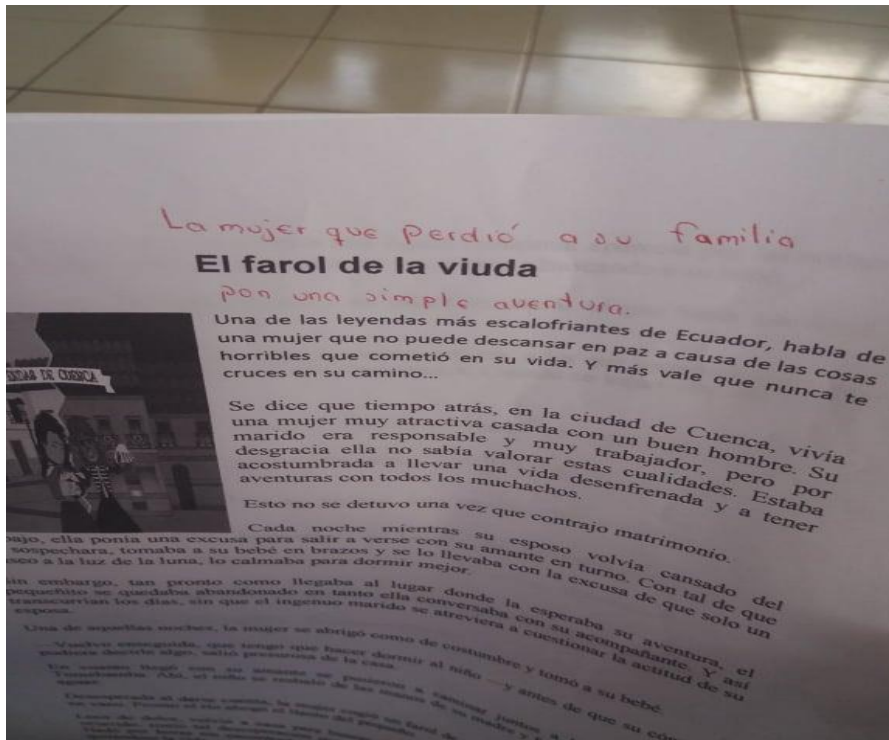 La mujer que perdió a su familia
El farol de la viuda
por una simple aventura.
Una de las leyendas más escalofriantes de Ecuador, habla de
una mujer que no puede descansar en paz a causa de las cosas
horribles que cometió en su vida. Y más vale que nunca te
cruces en su camino...
DAS DE CUENCA
Se dice que tiempo atrás, en la ciudad de Cuenca, vivía
una mujer muy atractiva casada con un buen hombre. Su
marido era responsable y muy trabajador, pero por
desgracia ella no sabía valorar estas cualidades. Estaba
acostumbrada a llevar una vida desenfrenada y a tener
aventuras con todos los muchachos.
Esto no se detuvo una vez que contrajo matrimonio.
Cada noche mientras su esposo volvía cansado del
bajo, ella ponía una excusa para salir a verse con su amante en turno. Con tal de que
sospechara, tomaba a su bebé en brazos y se lo llevaba con la excusa de que solo un
seo a la luz de la luna, lo calmaba para dormir mejor.
in embargo, tan pronto como llegaba al lugar donde la esperaba su aventura, el
pequeñito se quedaba abandonado en tanto ella conversaba con su acompañante. Y así
transcurrían los días, sin que el ingenuo marido se atreviera a cuestionar la actitud de su
esposa.
Una de aquellas noches, la mujer se abrigó como de costumbre y tomó a su bebé.
—Vuelvo enseguida, que tengo que hacer dormir al niño —y antes de que su
pudiera decirle algo, salió presurosa de la casa.